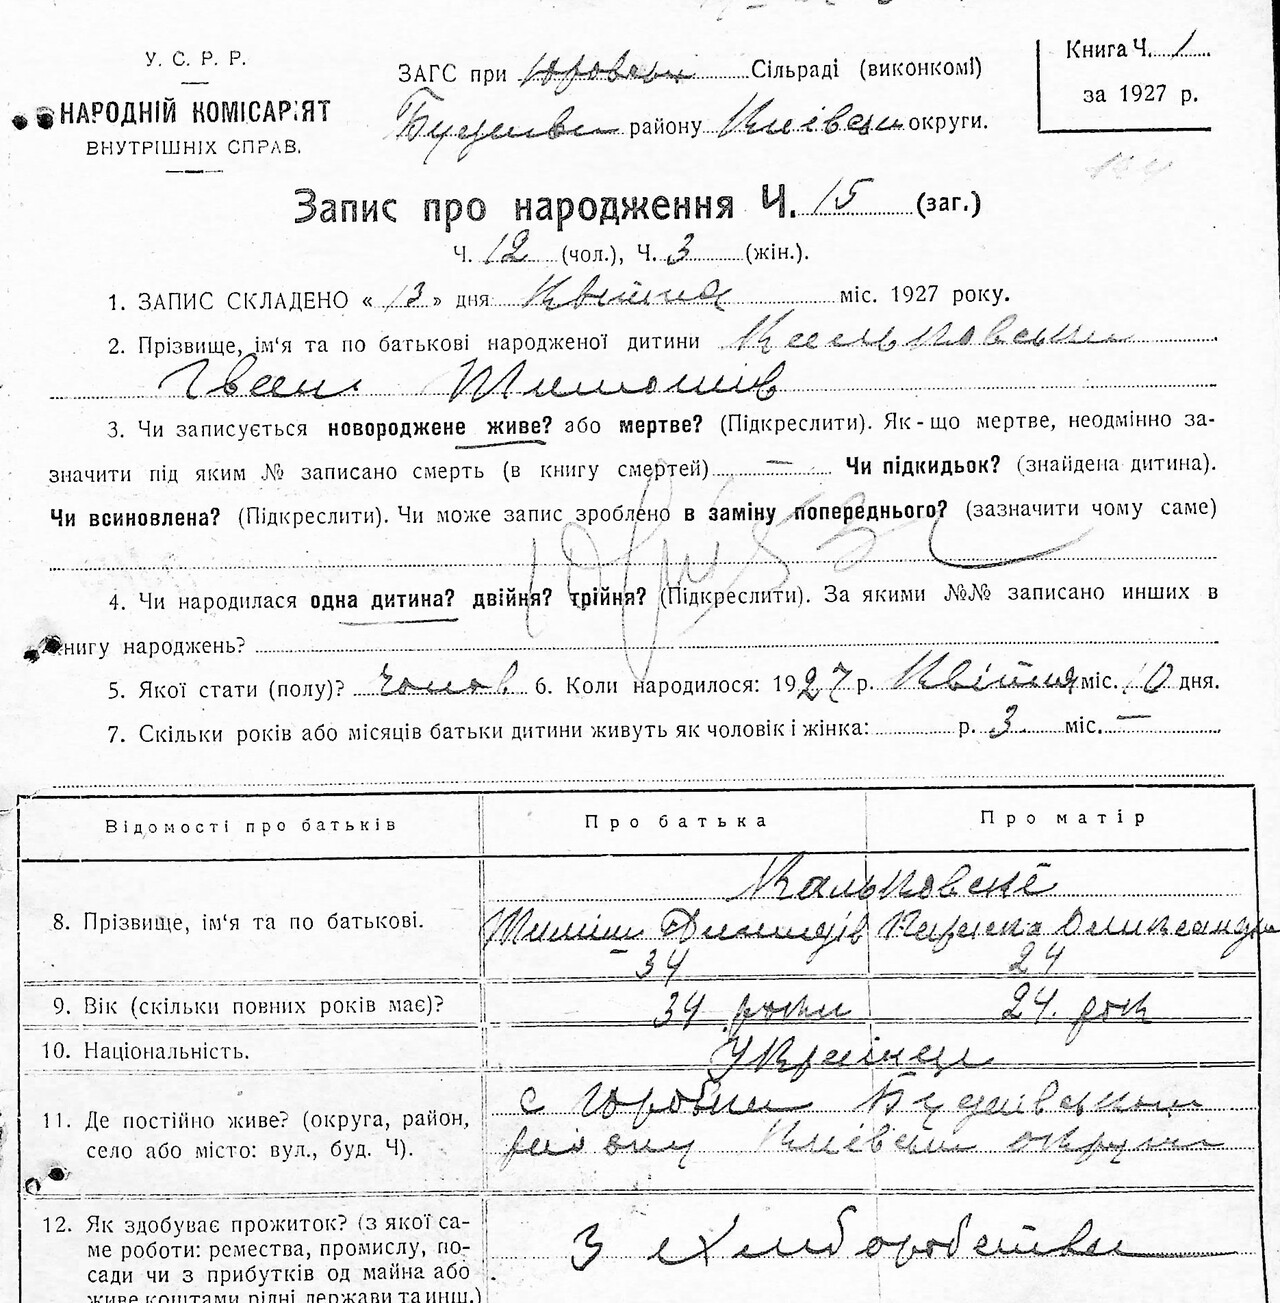 У. С. Р. Р.
НАРОДНІЙ КОМІСАР'ЯТ
ВНУТРІШНІХ СПРАВ.
ЗАГС при Сільраді (виконкомі)
району Київськ округи.
Книга Ч. 1
за 1927 р.
Запис про народження Ч. 15 (заг.)
Ч. 12 (чол.), Ч. 3 (жін.).
1. ЗАПИС СКЛАДЕНО « 13 » дня Квітня міс. 1927 року.
2. Прізвище, ім'я та по батькові народженої дитини Кальковський
Іван Тимошів
3. Чи записується новороджене живе? або мертве? (Підкреслити). Як-що мертве, неодмінно за-
значити під яким № записано смерть (в книгу смертей) — Чи підкидьок? (знайдена дитина).
Чи всиновлена? (Підкреслити). Чи може запис зроблено в заміну попереднього? (зазначити чому саме)
4. Чи народилася одна дитина? двійня? трійня? (Підкреслити). За якими №№ записано инших в
книгу народжень?
5. Якої стати (полу)? чолов. 6. Коли народилося: 1927 р. Квітня міс. 10 дня.
7. Скільки років або місяців батьки дитини живуть як чоловік і жінка: р. 3 міс. —
Відомості про батьків
Про батька
Про матір
8. Прізвище, ім'я та по батькові.
Кальковскі
Тиміш
Олександр
34
24
9. Вік (скільки повних років має)?
34 роки
24. рок
10. Національність.
Українці
11. Де постійно живе? (округа, район,
село або місто: вул., буд. Ч).
с
району Київськ округи
12. Як здобуває прожиток? (з якої са-
ме роботи: ремества, промислу, по-
сади чи з прибутків од майна або
живе коштами рідні, держави та инш.)
З хліборобства